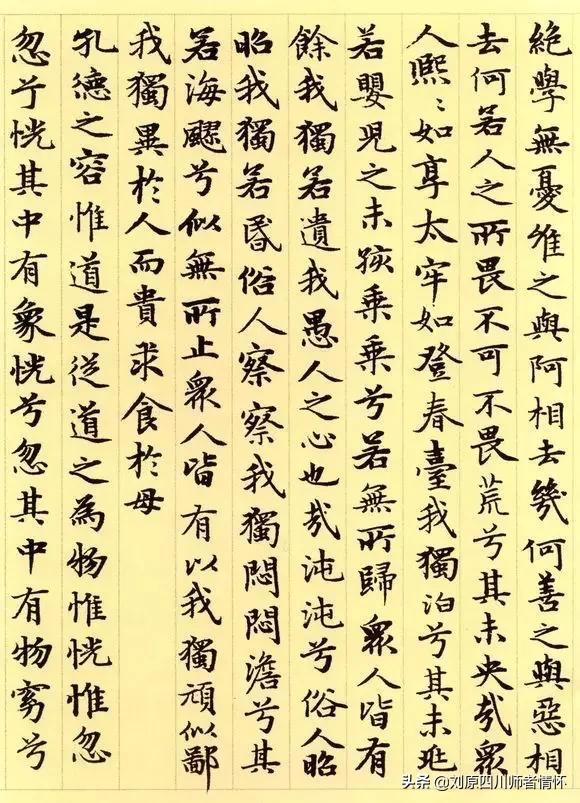 絕學無憂維之與阿相去幾何善之與惡相
去何若人之所畏不可不畏荒兮其未央哉衆
人熙〻如享太牢如登春臺我獨泊兮其未兆
若嬰児之未孩乘乘兮若無所歸衆人皆有
餘我獨若遺我愚人之心也哉沌沌兮俗人昭
昭我獨若昏俗人察察我獨悶悶澹兮其
若海飂兮似無所止衆人皆有以我獨頑似鄙
我獨異於人而貴求食於母
孔德之容惟道是從道之為物惟恍惟忽
忽兮恍其中有象恍兮忽其中有物窈兮
头条 @刘原四川师者情怀